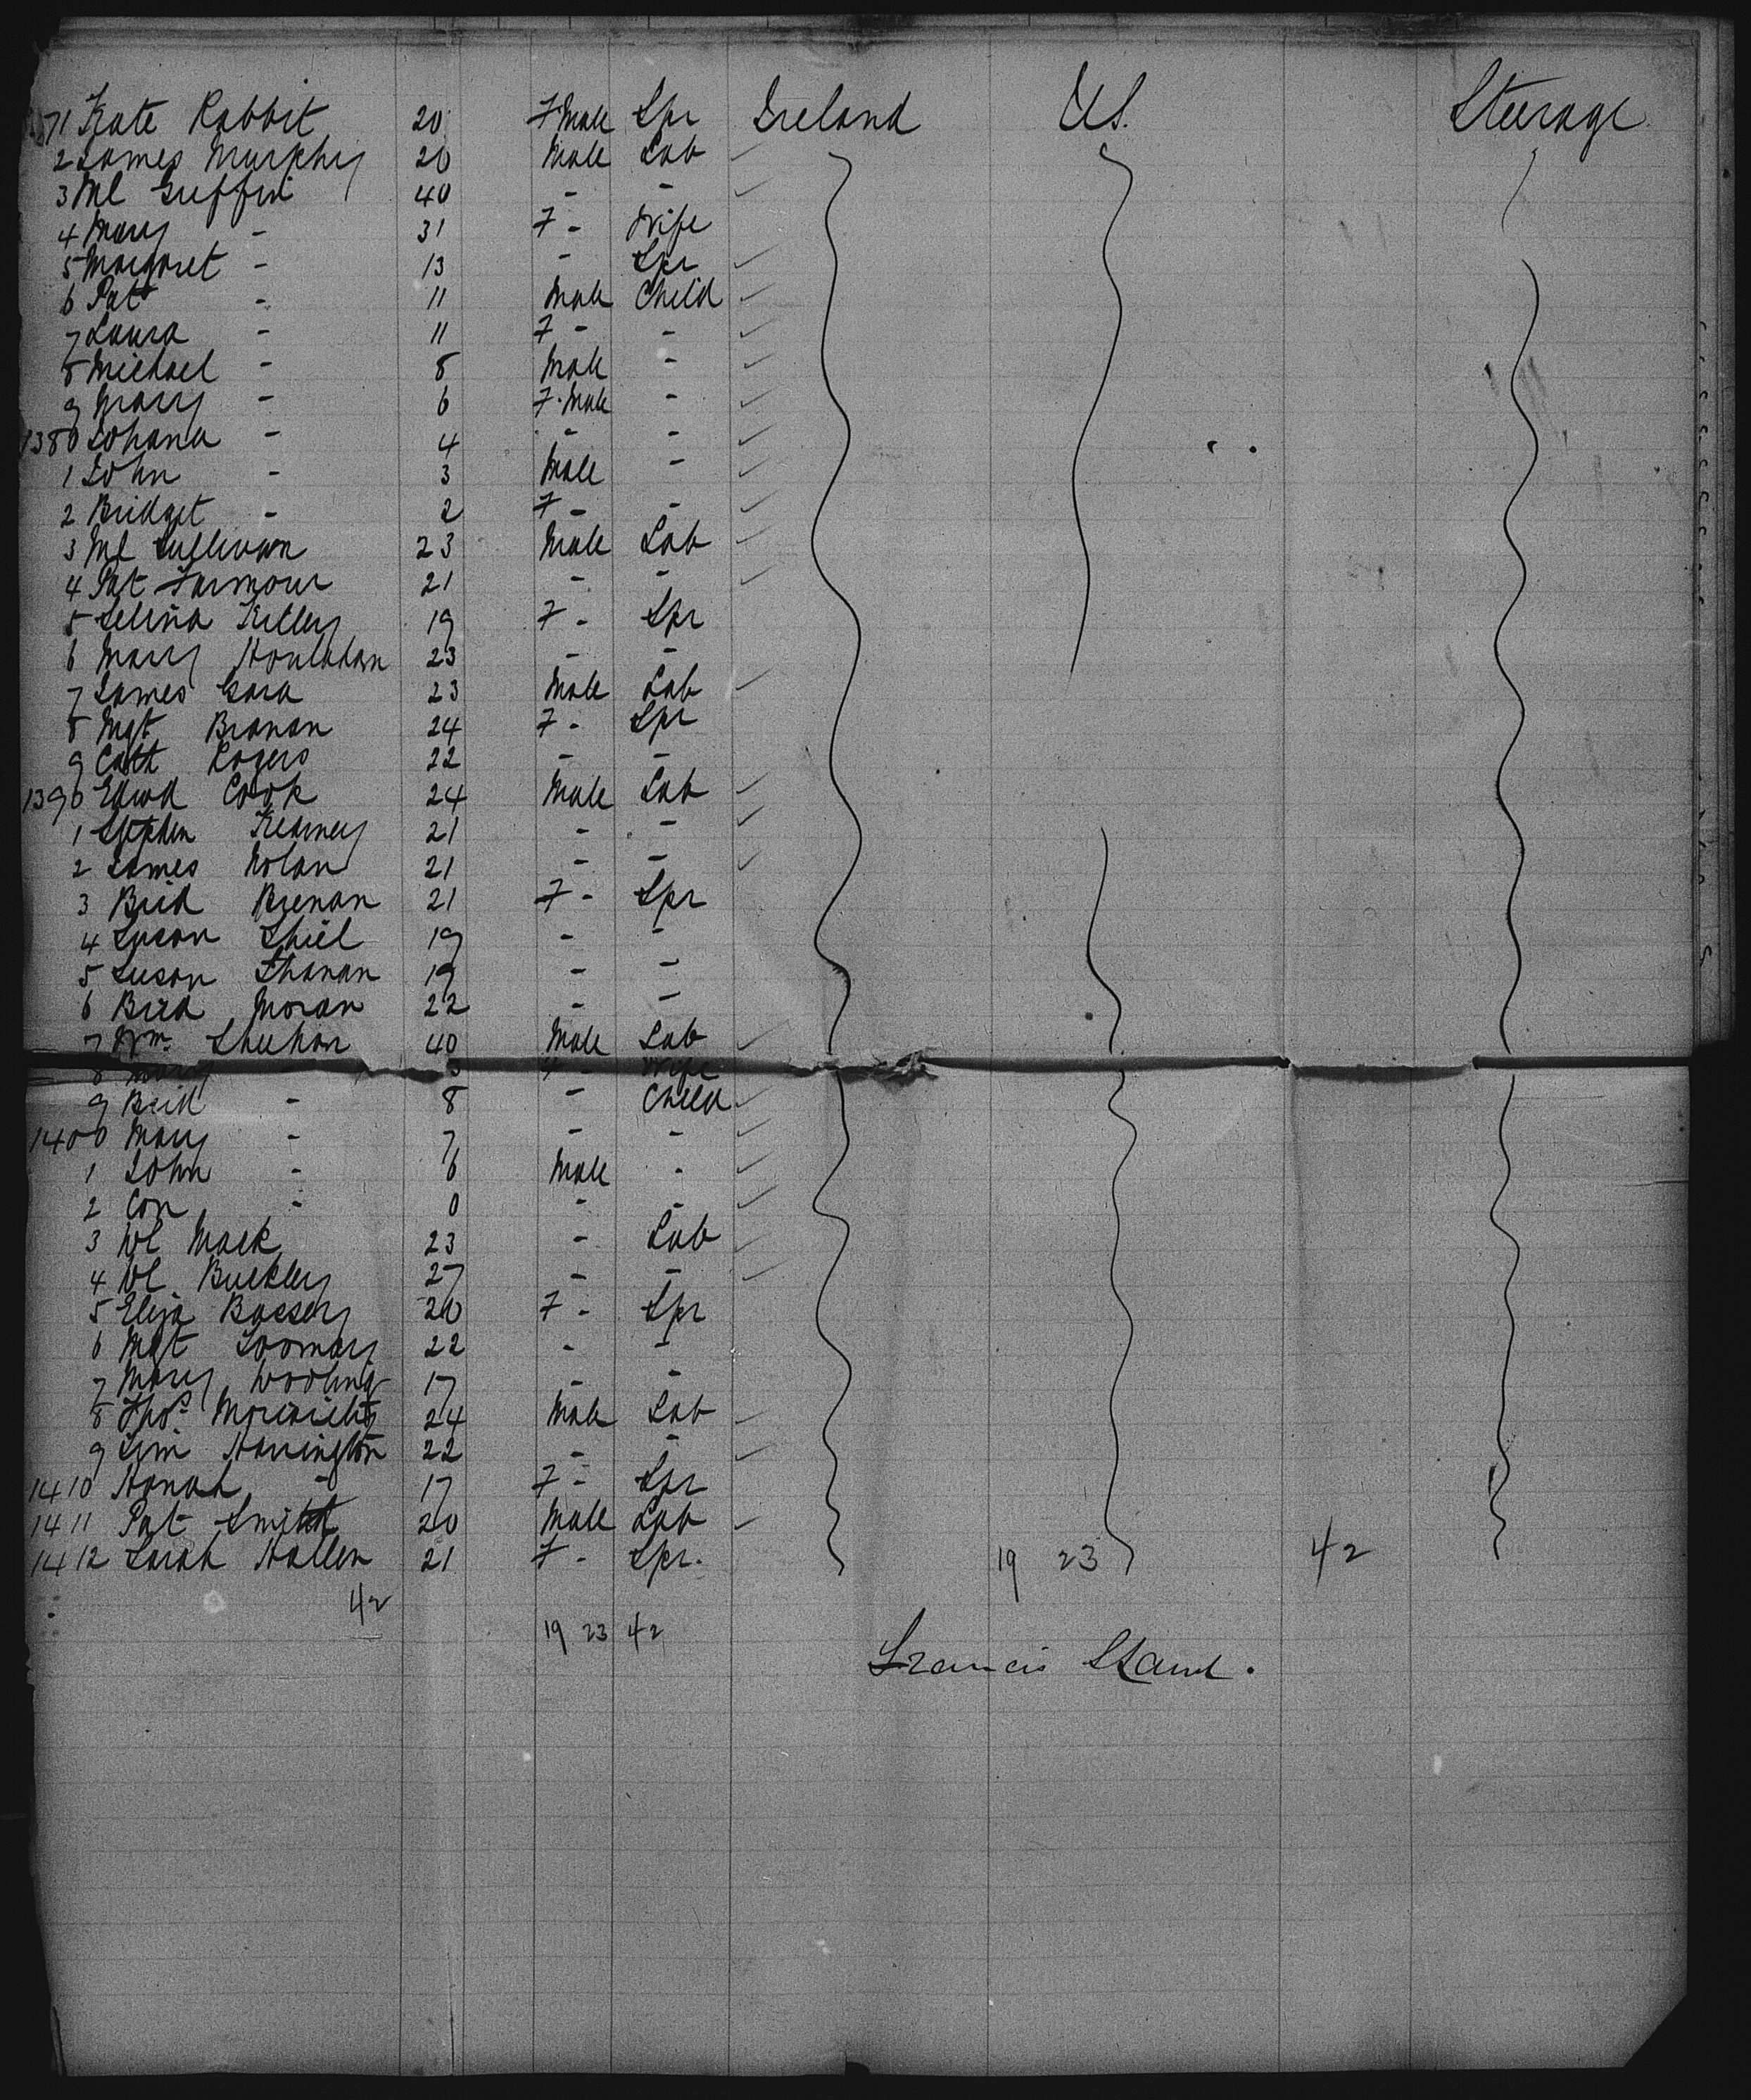 1371 Kate Rabbit 20 F Male Spr Ireland U.S. Steerage
2 James Murphy 20 Male Lab
3 Ml Griffin 40 - -
4 Mary - 31 F - Wife
5 Margaret - 13 - Spr
6 Pat - 11 Male Child
7 Laura - 11 F - -
8 Michael - 8 Male -
9 Mary - 6 F. Male -
1380 Johana - 4 - -
1 John - 3 Male -
2 Bridget - 2 F - -
3 Ml Sullivan 23 Male Lab
4 Pat 21 - -
5 Selina 19 F - Spr
6 Mary Houlahan 23 - -
7 James Gara 23 Male Lab
8 Mgt Branan 24 F - Spr
9 Cath Rogers 22 - -
1390 Edwd Cook 24 Male Lab
1 Stephen Kearney 21 - -
2 James Nolan 21 - -
3 Brid Brenan 21 F - Spr
4 Susan Shiel 19 - -
5 Susan Shanan 19 - -
6 Brid Moran 22 - -
7 Wm. Sheehan 40 Male Lab
8 Mary Wife
9 Brid - 8 - Child
1400 Mary - 7 - -
1 John - 6 Male -
2 Con - 0 - -
3 Mack 23 - Lab
4 Buckley 27 - -
5 Eliza 20 F - Spr
6 Mgt 22 - -
7 Mary 17 - -
8 Thos. 24 Male Lab
9 Jim Harrington 22 - -
1410 Hanah - 17 F - Spr
1411 Pat Smith 20 Male Lab
1412 Sarah Hallen 21 F - Spr. 19 23 42
42
19 23 42
Francis